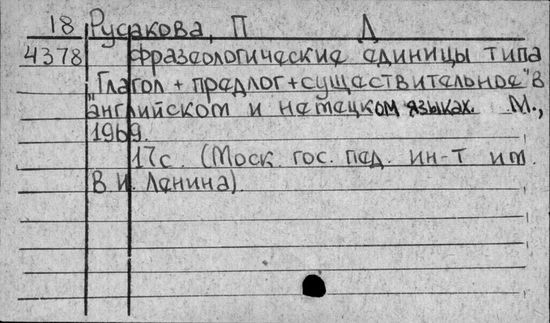 18 Русакова, П Л
4378 Фразеологические единицы типа
„Глагол + предлог+существительное" в
английском и немецком языках. М.,
1969.
17с. (Моск. гос. пед. ин-т им.
В.И. Ленина).